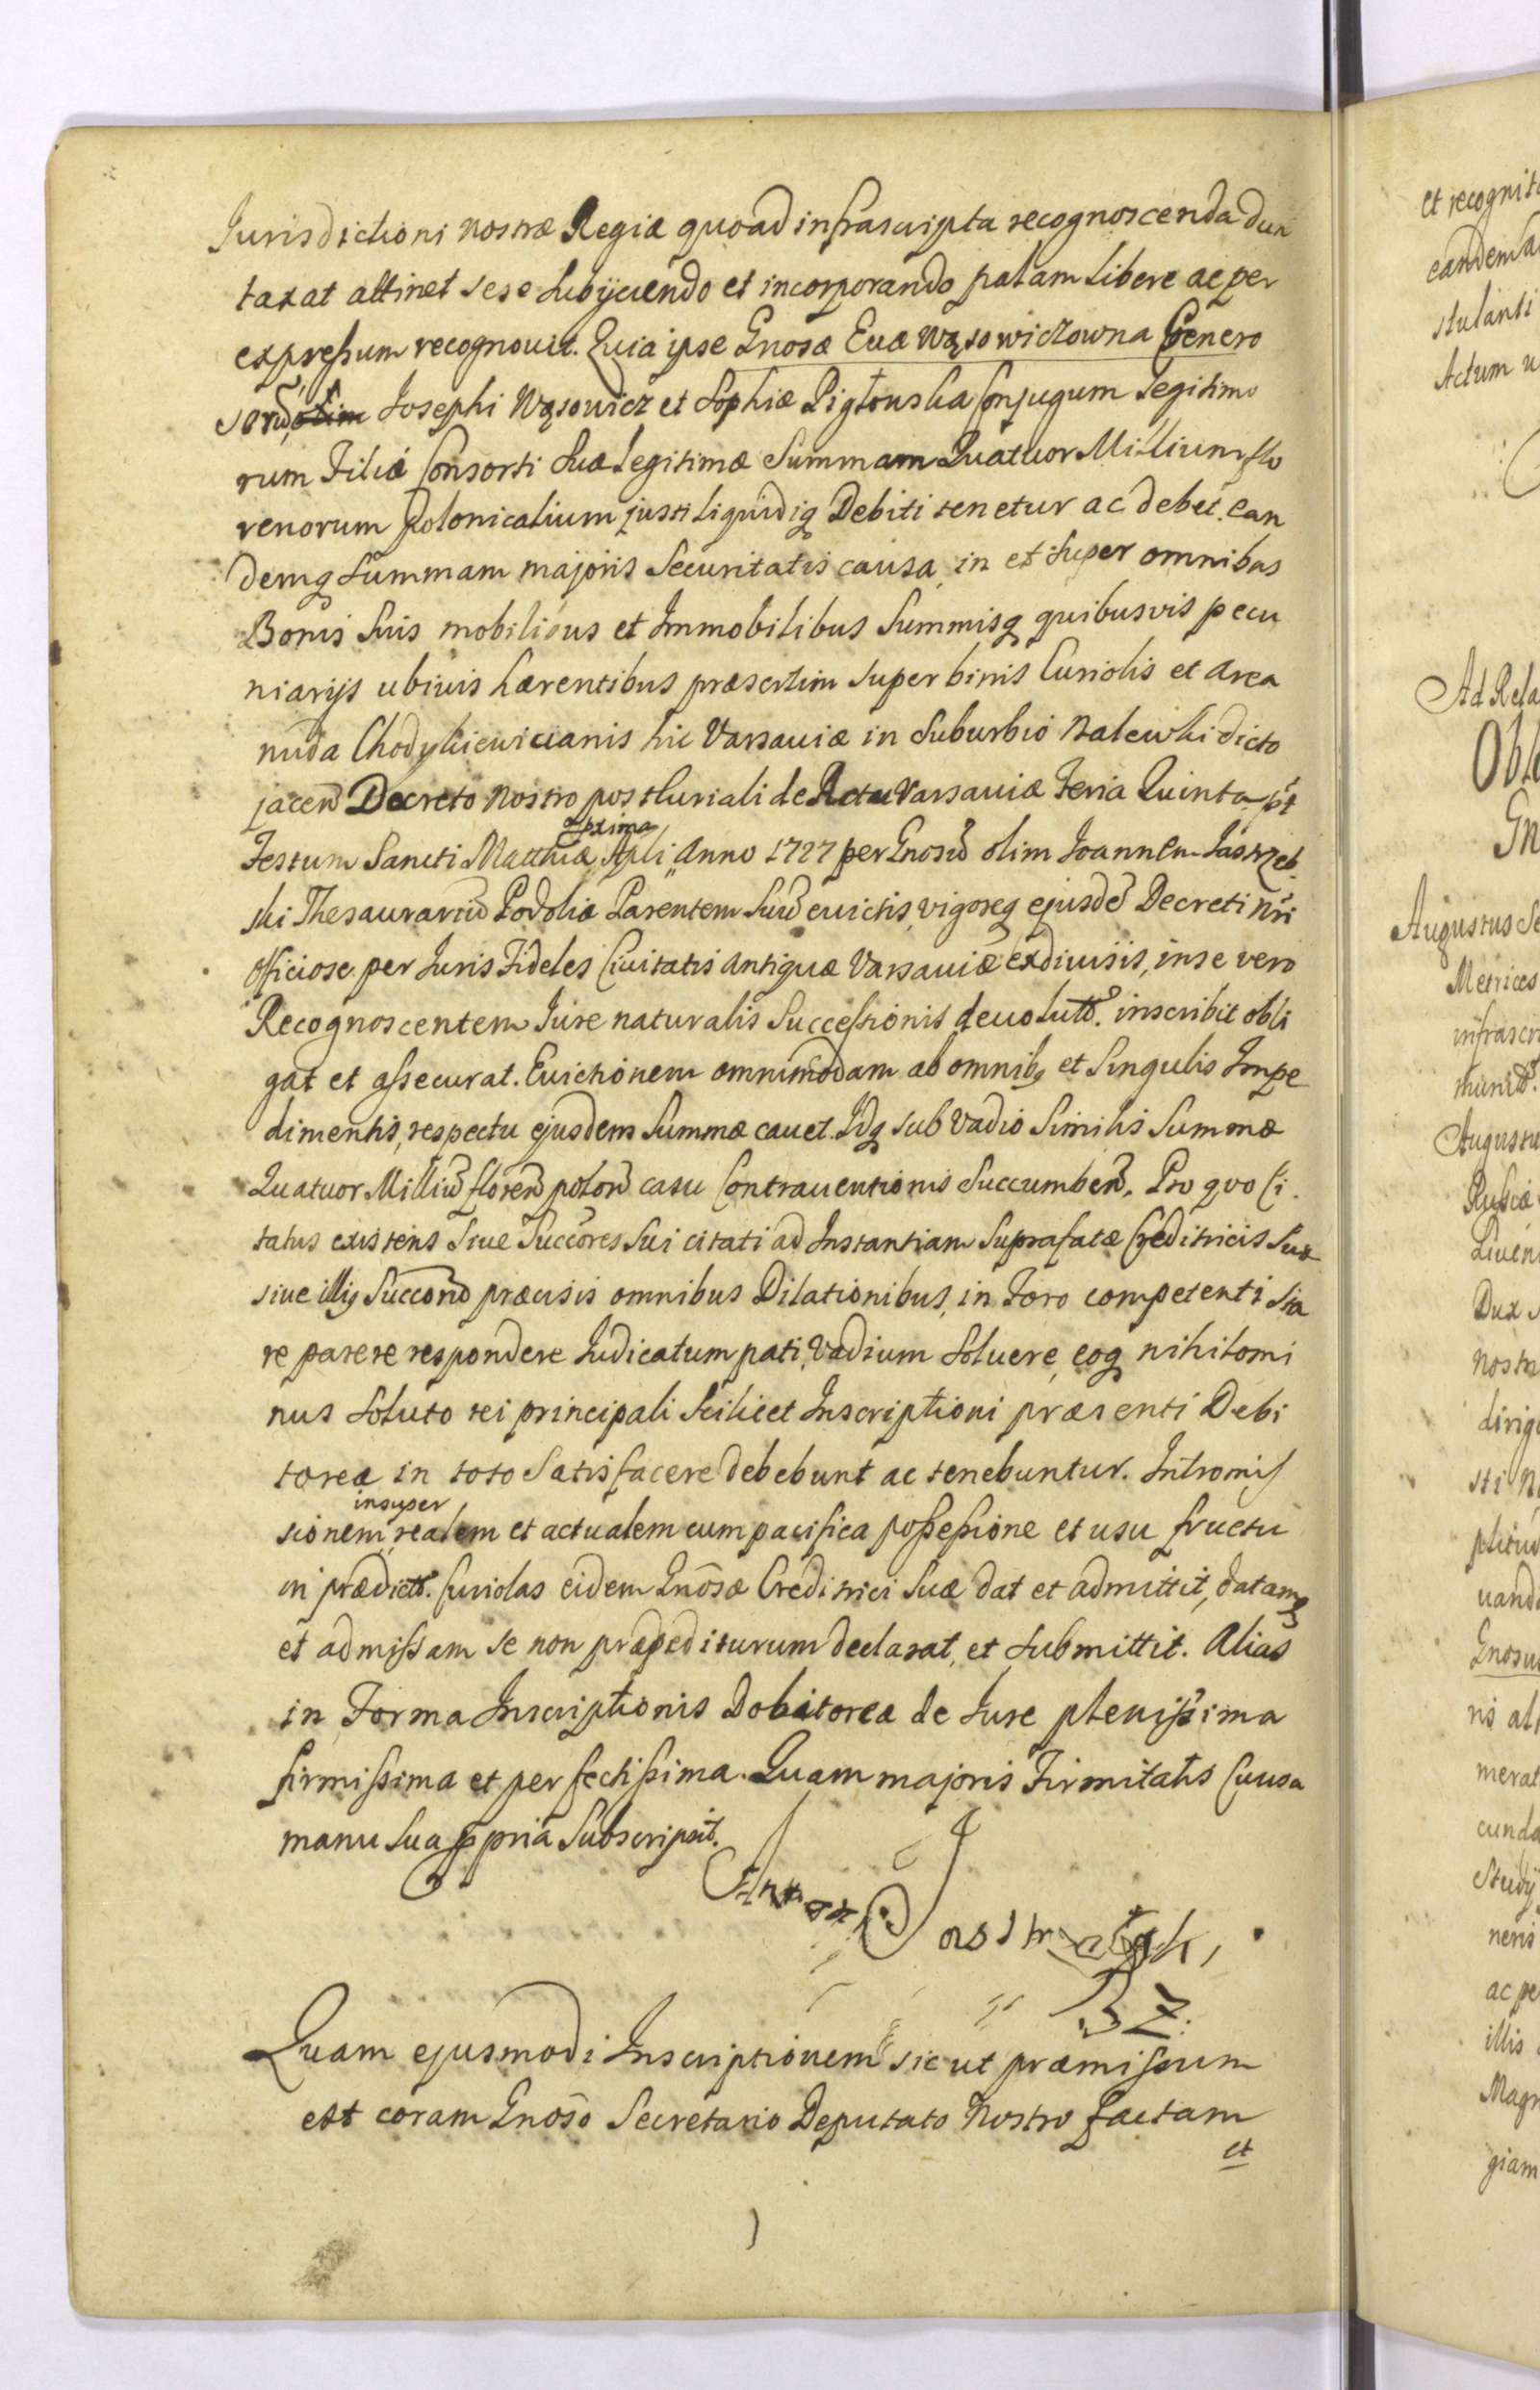 Jurisdictioni nostræ Regiæ quoad infrascripta recognoscenda dun
taxat attinet sese subijciendo et incorporando palam libere ac per
expressum recognouit. Quia ipse Gnosæ Euæ Wąsowiczowna Genero
sorũ olim Josephi Wąsowicz et Sophiæ Piglowska Conjugum legitimo
rum Filiæ Consorti suæ legitimæ Summam Quatuor Millium flo
renorum polonicalium justi liquidiq Debiti tenetur ac debet. ean
demq summam majoris Securitatis causa in et super omnibus
Bonis suis mobilibus et Immobilibus Summisq quibusvis pecu
niarijs ubiuis hærentibus præsertim super binis Curiolis et area
nuda Chodykiewicianis hic Varsauiæ in Suburbio Nalewki dicto
jacen̄ Decreto nostro post Curiali de Actu Varsauiæ Feria Quinta pt
proxima
Festum Sancti Matthiæ Apli Anno 1727 per Gnosũ olim Joannem Jastrzeb
ski Thesaurariũ Podoliæ Parentem suũ euictis, vigoreq ejusdẽ Decreti nri
officiose per Juris Fideles Ciuitatis Antiquæ Varsauiæ exdiuisis, in se vero
Recognoscentem Jure naturalis Successionis deuolutis. inscribit obli
gat et assecurat. Euictionem omnimodam ab omnibq et singulis Impe
dimentis, respectu ejusdem Summæ cauet. Idq sub Vadio Similis Summæ
Quatuor Milliũ floren̄ polon̄ casu Contrauentionis Succumben̄. Pro quo Ci
tatus existens Siue Succores Sui citati ad Instantiam Suprafatæ Creditricis Suæ
siue illiq Succorũ præcisis omnibus Dilationibus, in Foro competenti sta
re parere respondere Judicatum pati, Vadium soluere, eoq nihilomi
nus soluto rei principali Scilicet Inscriptioni præsenti Debi
toreæ in toto Satisfacere debebunt ac tenebuntur. Intromis
insuper
sionem realem et actualem cum pacifica possessione et usu fructu
in prædict. Curiolas eidem Gnosæ Creditrici suæ dat et admittit, datamq
et admissam se non præpediturum declarat, et submittit. Alias
in Forma Inscriptionis Debitoreæ de Jure plenissima
firmissima et perfectissima. Quam majoris Firmitatis Causa
manu sua ppria Subscripsit.
BZ.
Quam ejusmodi Inscriptionem sic ut præmissum
est coram Gnoso Secretario Deputato Nostro factam
et